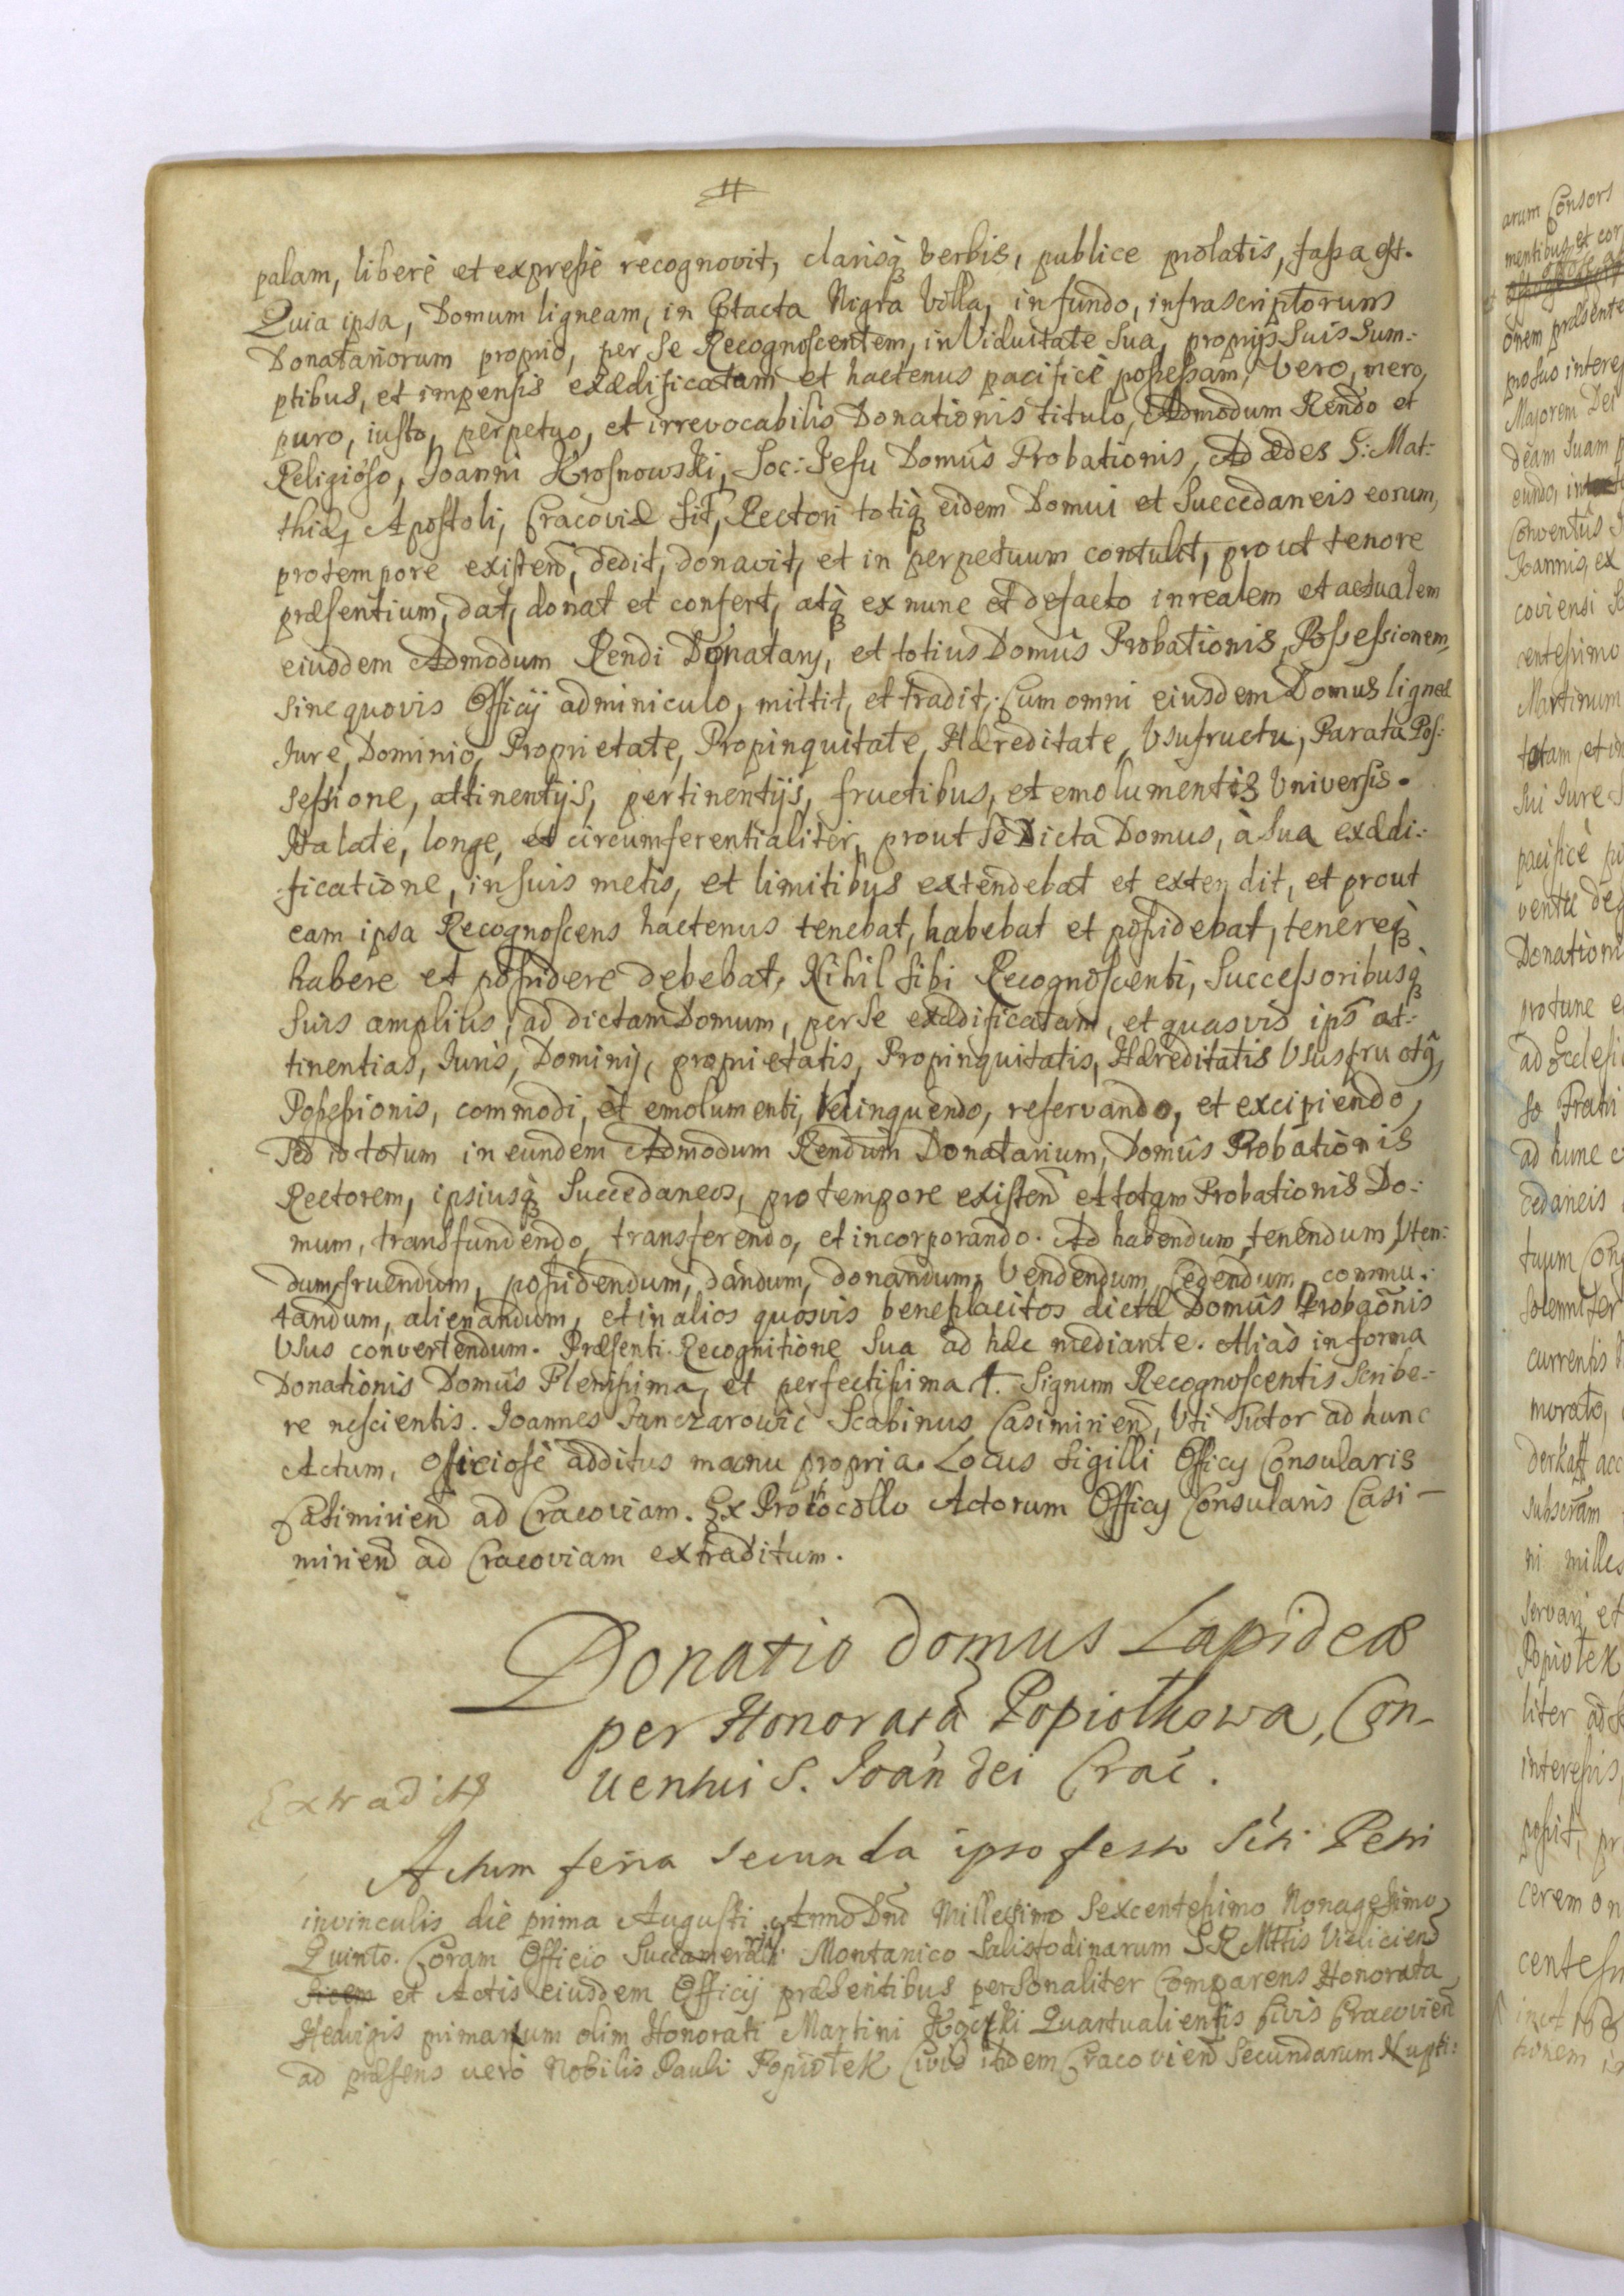 palam, liberè et expressè recognovit, clarisq verbis, publice prolatis, fassa est.
Quia ipsa, Domum ligneam, in Ptacta Nigra Villa, in fundo, infrascriptorum
Donatariorum proprio, per se Recognoscentem, in Viduitate sua, proprijs suis Sum-:
ptibus, et impensis exædificatam et hactenus pacificè possessam, vero, mero,
puro, iusto, perpetuo, et irrevocabilis Donationis titulo, Admodum Rendo et
Religioso, Joanni Krosnowski, Soc: Jesu Domûs Probationis, Ad ædes S: Mat:
thiæ, Apostoli, Cracoviæ sit, Rectori totiq eidem Domui et Succedaneis eorum,
protempore existen, dedit, donavit, et in perpetuum contulit, prout tenore
præsentium, dat, donat et confert, atq ex nunc et defacto in realem et actualem
eiusdem Admodum Rendi Donatarij, et totius Domûs Probationis, Possessionem,
sine quovis Officij adminiculo, mittit, et tradit; Cum omni eiusdem Domus ligneæ
Iure, Dominio, Proprietate, Propinquitate, Hæreditate, Vsufructu, Parata Pos:
sessione, attinentijs, pertinentijs, fructibus, et emolumentis Universis.
Ita late, longe, et circumferentialiter, prout se Dicta Domus, à sua exædi-:
ficatione, in suis metis, et limitibus extendebat et extendit, et prout
eam ipsa Recognoscens hactenus tenebat, habebat et possidebat, tenereq
habere et possidere debebat, Nihil sibi Recognoscenti, Successoribusq
suis amplius, ad dictam Domum, per se exædificatam, et quasvis ips at-:
tinentias, Juris, Dominij, proprietatis, Propinquitatis, Hæreditatis Vsusfructq,
Possessionis, commodi, et emolumenti, Relinquendo, reservando, et excipiendo,
Sed id totum in eundem Admodum Rendum Donatarium, Domûs Probationis
Rectorem, ipsiusq Succedaneos, pro tempore existen et totam Probationis Do-:
mum, transfundendo, transferendo, et incorporando. Ad habendum, tenendum, Vten:
dum, fruendum, possidendum, dandum, donandum, Vendendum, Cedendum, commu-:
tandum, alienandum, et in alios quosvis beneplacitos dictæ Domûs Probaõnis
Vsus convertendum. Præsenti Recognitione Sua ad hæc mediante. Alias in forma
Donationis Domûs Plenissima, et perfectissima. †. Signum Recognoscentis Scribe-:
re nescientis. Joannes Sanczarowic Scabinus Casimirien, Vti Tutor ad hunc
Actum, officiosè additus manu propria. Locus Sigilli Officij Consularis
Casimirien ad Cracoviam. Ex Protocollo Actorum Officij Consularis Casi-
mirien ad Cracoviam extraditum.
Donatio domus Lapideæ
per Honoratã Popiołkowa, Con-
uentui S. Joan dei Crac.
Extradit
Actum feria secunda ipso festo Scti Petri
in vinculis die prima Augusti Anno Dni Millesimo Sexcentesimo Nonagesimo
Quinto. Coram Officio Montanico Salisfodinarum S R Mttis Vielicien
et Actis eiusdem Officij præsentibus personaliter Comparens Honorata
Hedvigis primarum olim Honorati Martini Quartualientis Civis Cracovien
ad præsens verò Nobilis Pauli Popiołek Civis itidem Cracovien Secundarum Nupti: